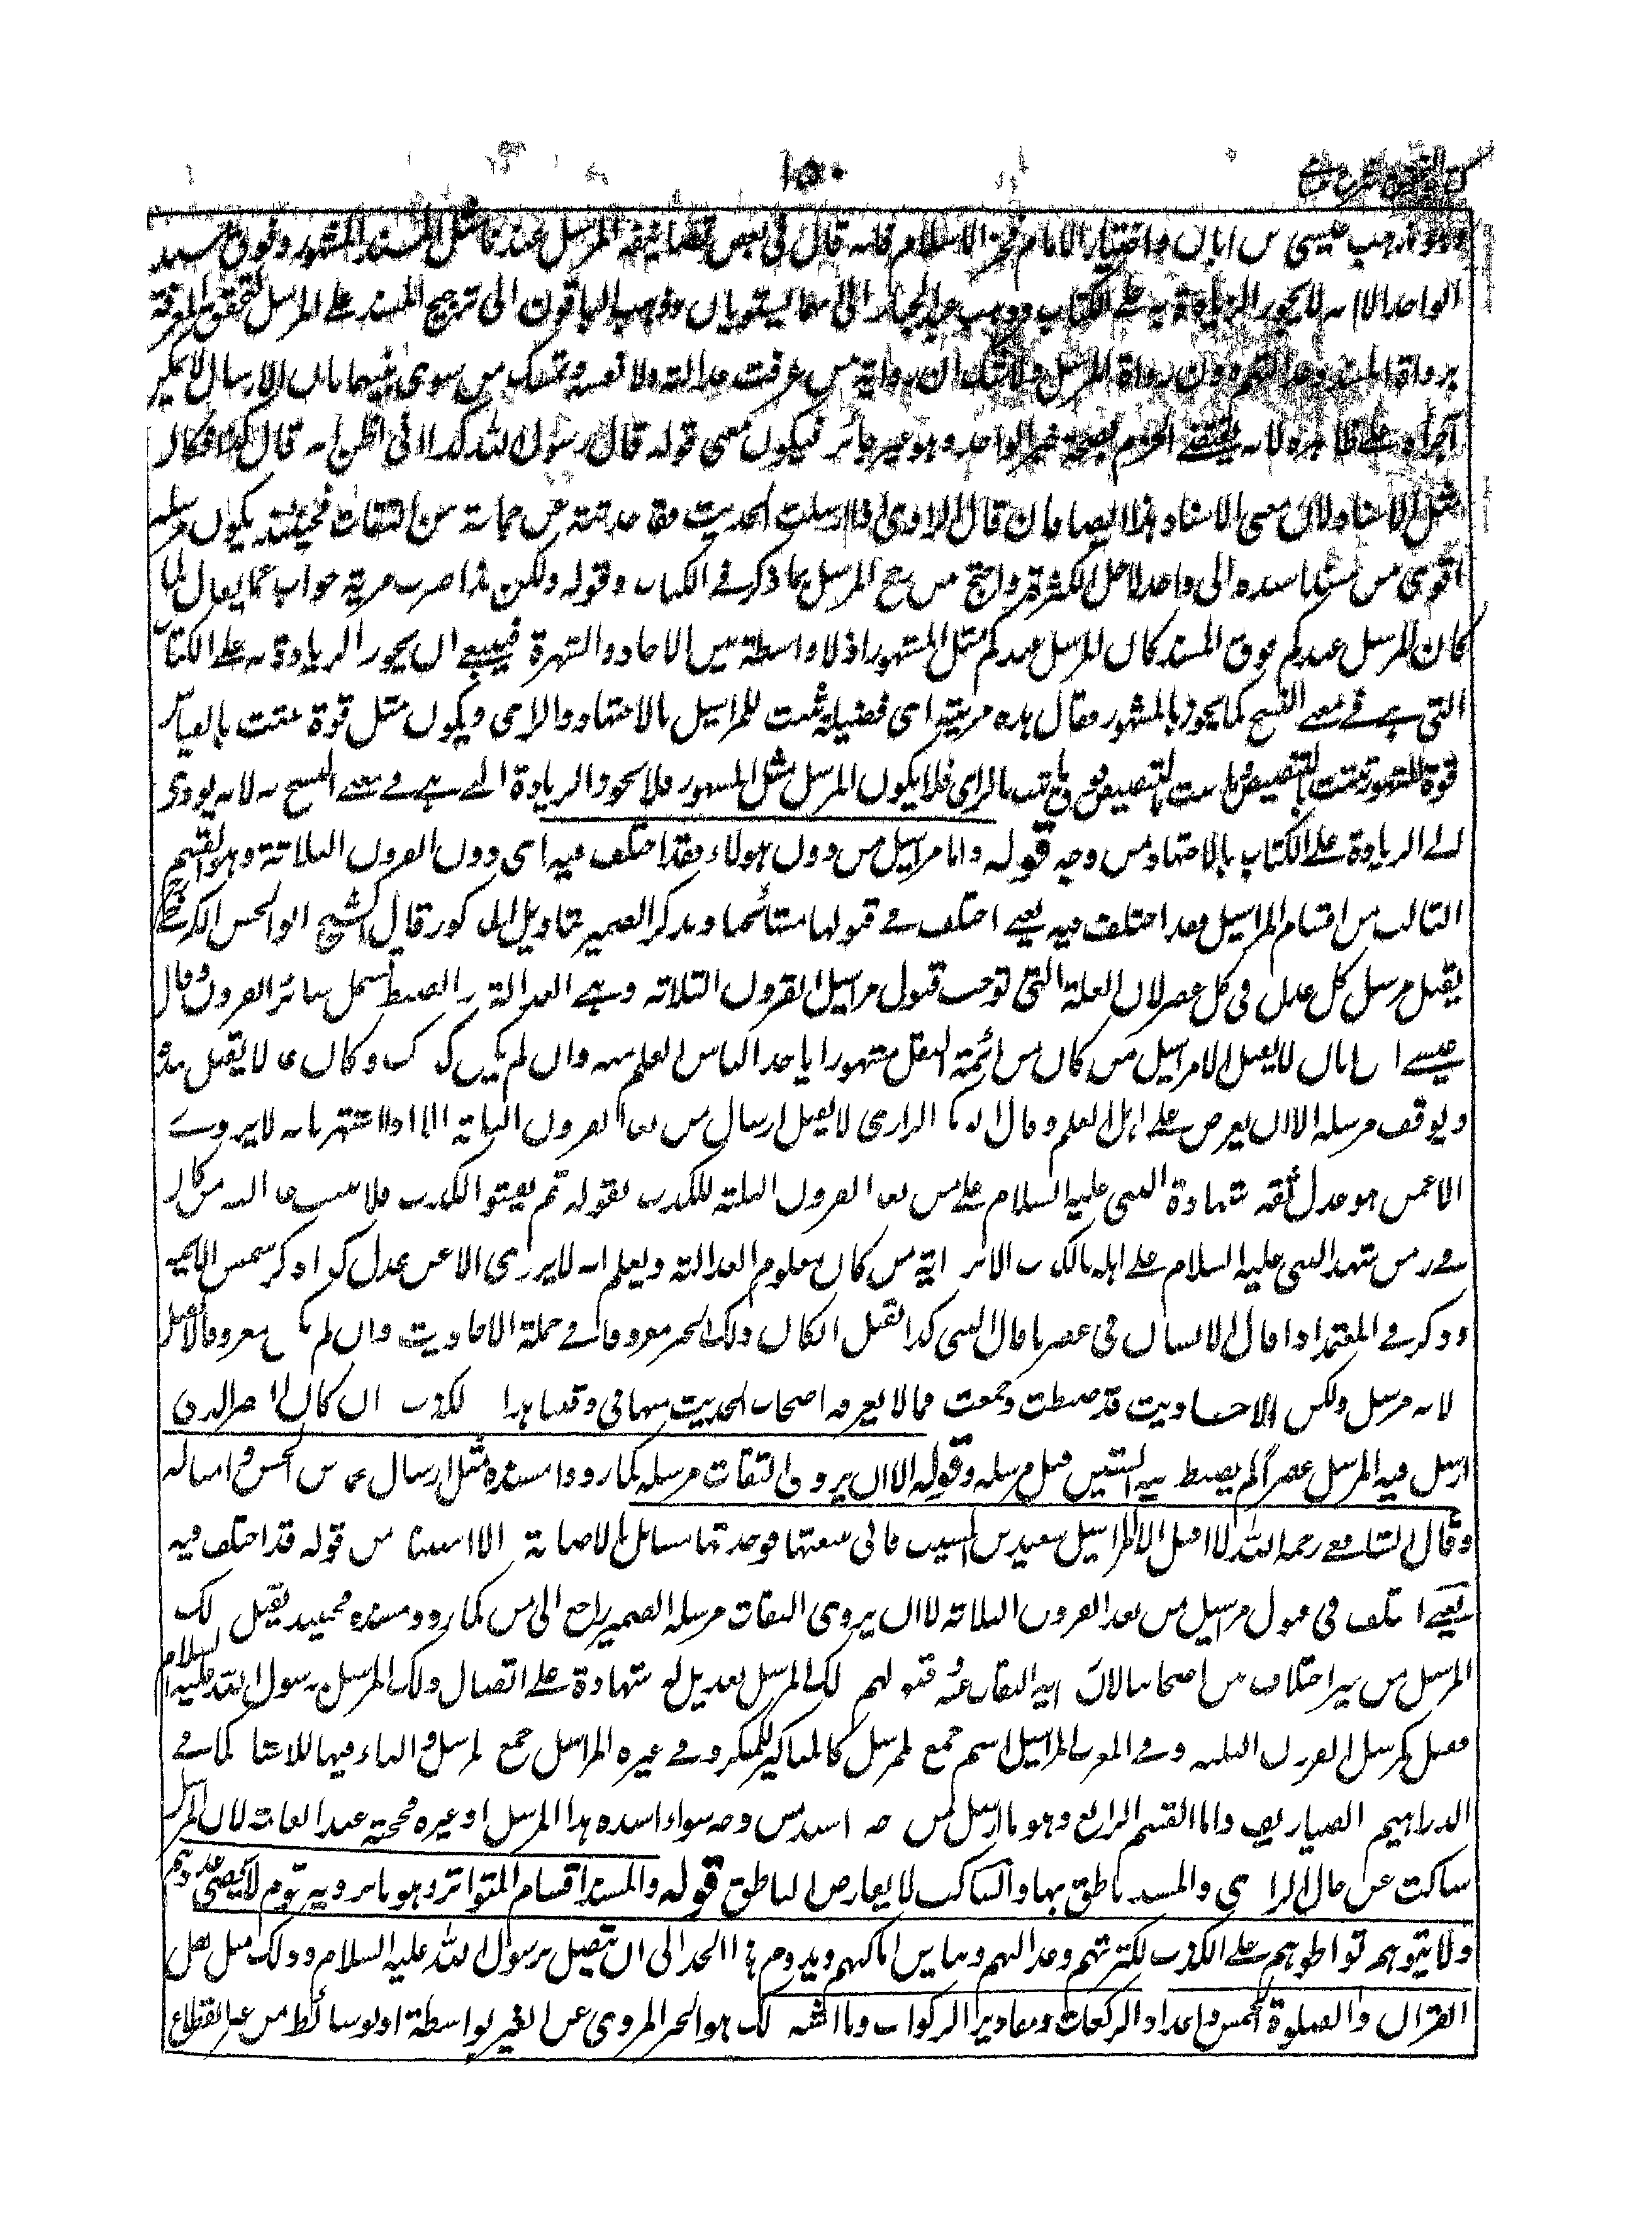 ١٥٠
وهو مذهب عيسى بن ابان واختيار الامام فخر الاسلام فانه قال في بعض تصانيفه المرسل عندنا مثل المسند المشهور وفوق المسند
الواحد الا انه لا يجوز الزيادة به على الكتاب وذهب عبد الجبار الى انهما يستويان وذهب الباقون الى ترجيح المسند على المرسل لتحقق المعرفة
برواة المسند وعدالتهم دون رواة المرسل ولا شك ان رواية من عرفت عدالته اولى وتمسك من سوى بينهما بان الارسال لا يمكن
اجراؤه على ظاهره لانه يقتضي الجزم بصحة خبر الواحد وهو غير جائز فيكون معنى قوله قال رسول الله كذا اني اظن انه قال كذا فكان
مثل الاسناد لان معنى الاسناد هذا ايضا فان قال الراوي اذا ارسلت الحديث فقد حدثته عن جماعة من الثقات فحينئذ يكون مرسله
اقوى من اسناده الى واحد لاجل الكثرة واحتج من رجح المرسل بما ذكر في الكتاب وقوله ولكن هذا ضرب مزية جواب عما يقال لما
كان المرسل عندكم فوق المسند كان المرسل عندكم مثل المشهور اذ لا واسطة بين الاحاد والشهرة فينبغي ان يجوز الزيادة به على الكتاب
التي هي في معنى النسخ كما يجوز بالمشهور فقال هذه مزية اى فضيلة ثبتت للمراسيل بالاجتهاد والراى فيكون مثل قوة ثبتت بالقياس
قوة المشهور ثبتت بالتنصيص وما ثبت بالتنصيص فوق ما ثبت بالراى فلا يكون المرسل مثل المشهور فلا يجوز الزيادة التي هي في معنى النسخ به لانه يودى
الى الزيادة على الكتاب بالاجتهاد من وجه قوله واما مراسيل من دون هولاء فقد اختلف فيه اى دون القرون الثلاثة وهو القسم
الثالث من اقسام المراسيل فقد اختلف فيه يعني اختلف في قبولها مشائخنا وتذكير الضمير بتاويل المذكور قال الشيخ ابو الحسن الكرخي
يقبل مرسل كل عدل في كل عصر لان العلة التي توجب قبول مراسيل القرون الثلاثة وهي العدالة والضبط تشمل سائر القرون وقال
عيسى بن ابان لا يقبل الا مراسيل من كان من ائمة النقل مشهورا ياخذ الناس العلم منه وان لم يكن كذلك وكان عدلا لا يقبل مسنده
ويوقف مرسله الا ان يعرض على اهل العلم وقال ابو بكر الرازى لا يقبل ارسال من بعد القرون الثلاثة الا اذا اشتهر بانه لا يروى
الا عمن هو عدل ثقة شهادة النبي عليه السلام على من بعد القرون الثلثة بالكذب بقوله ثم يفشو الكذب فلا تثبت عدالة من كان
في زمن شهد النبي عليه السلام على اهله بالكذب الا برواية من كان معلوم العدالة ويعلم انه لا يروى الا عن عدل كذا ذكر شمس الائمة
وذكر في المعتمد اذا قال الانسان في عصرنا قال النبي كذا يقبل ان كان ذلك الخبر معروفا في جملة الاحاديث وان لم يكن معروفا لا يقبل
لانه مرسل ولكن لان الاحاديث قد ضبطت وجمعت فما لا يعرفه اصحاب الحديث منها في وقتنا هذا كذب وان كان العصر الذى
ارسل فيه المرسل عصرا لم يضبط فيه السنن قبل مرسله وقوله الا ان يروى الثقات مرسله كما رووا مسنده مثل ارسال محمد بن الحسن وامثاله
وقال الشافعي رحمه الله لا اقبل الا مراسيل سعيد بن المسيب فاني تتبعتها فوجدتها مسانيد الاصابة الا استثناء من قوله قد اختلف فيه
يعني اختلف في قبول مراسيل من بعد القرون الثلاثة الا ان يروى الثقات مرسله الضمير راجع الى من كما رووا مسنده فحينئذ يقبل ذلك
المرسل من غير اختلاف من اصحابنا لان رواية الثقات عنه وقبولهم ذلك المرسل تعديل له وشهادة على اتصال ذلك المرسل برسول الله عليه السلام
فيقبل كمرسل القرون الثلثة وفي المغرب المراسيل اسم جمع لمرسل كالمناكير للمنكر وفي غيره المراسيل جمع لمرسل والياء فيها للاشباع كما في
الدراهيم الصياريف واما القسم الرابع وهو ما ارسل من وجه اسند من وجه سواء اسنده هذا المرسل او غيره فحجة عند العامة لان المرسل
ساكت عن حال الراوى والمسند ناطق بها والساكت لا يعارض الناطق قوله والمسند اقسام المتواتر وهو ما يرويه قوم لا يحصى عددهم
ولا يتوهم تواطوهم على الكذب لكثرتهم وعدالتهم وتباين اماكنهم ويدوم هذا الحد الى ان يتصل برسول الله عليه السلام وذلك مثل نقل
القران والصلوة الخمس واعداد الركعات ومقادير الزكوات وما اشبه ذلك هو الخبر المروى عن الغير بواسطة او بوسائط من غير انقطاع